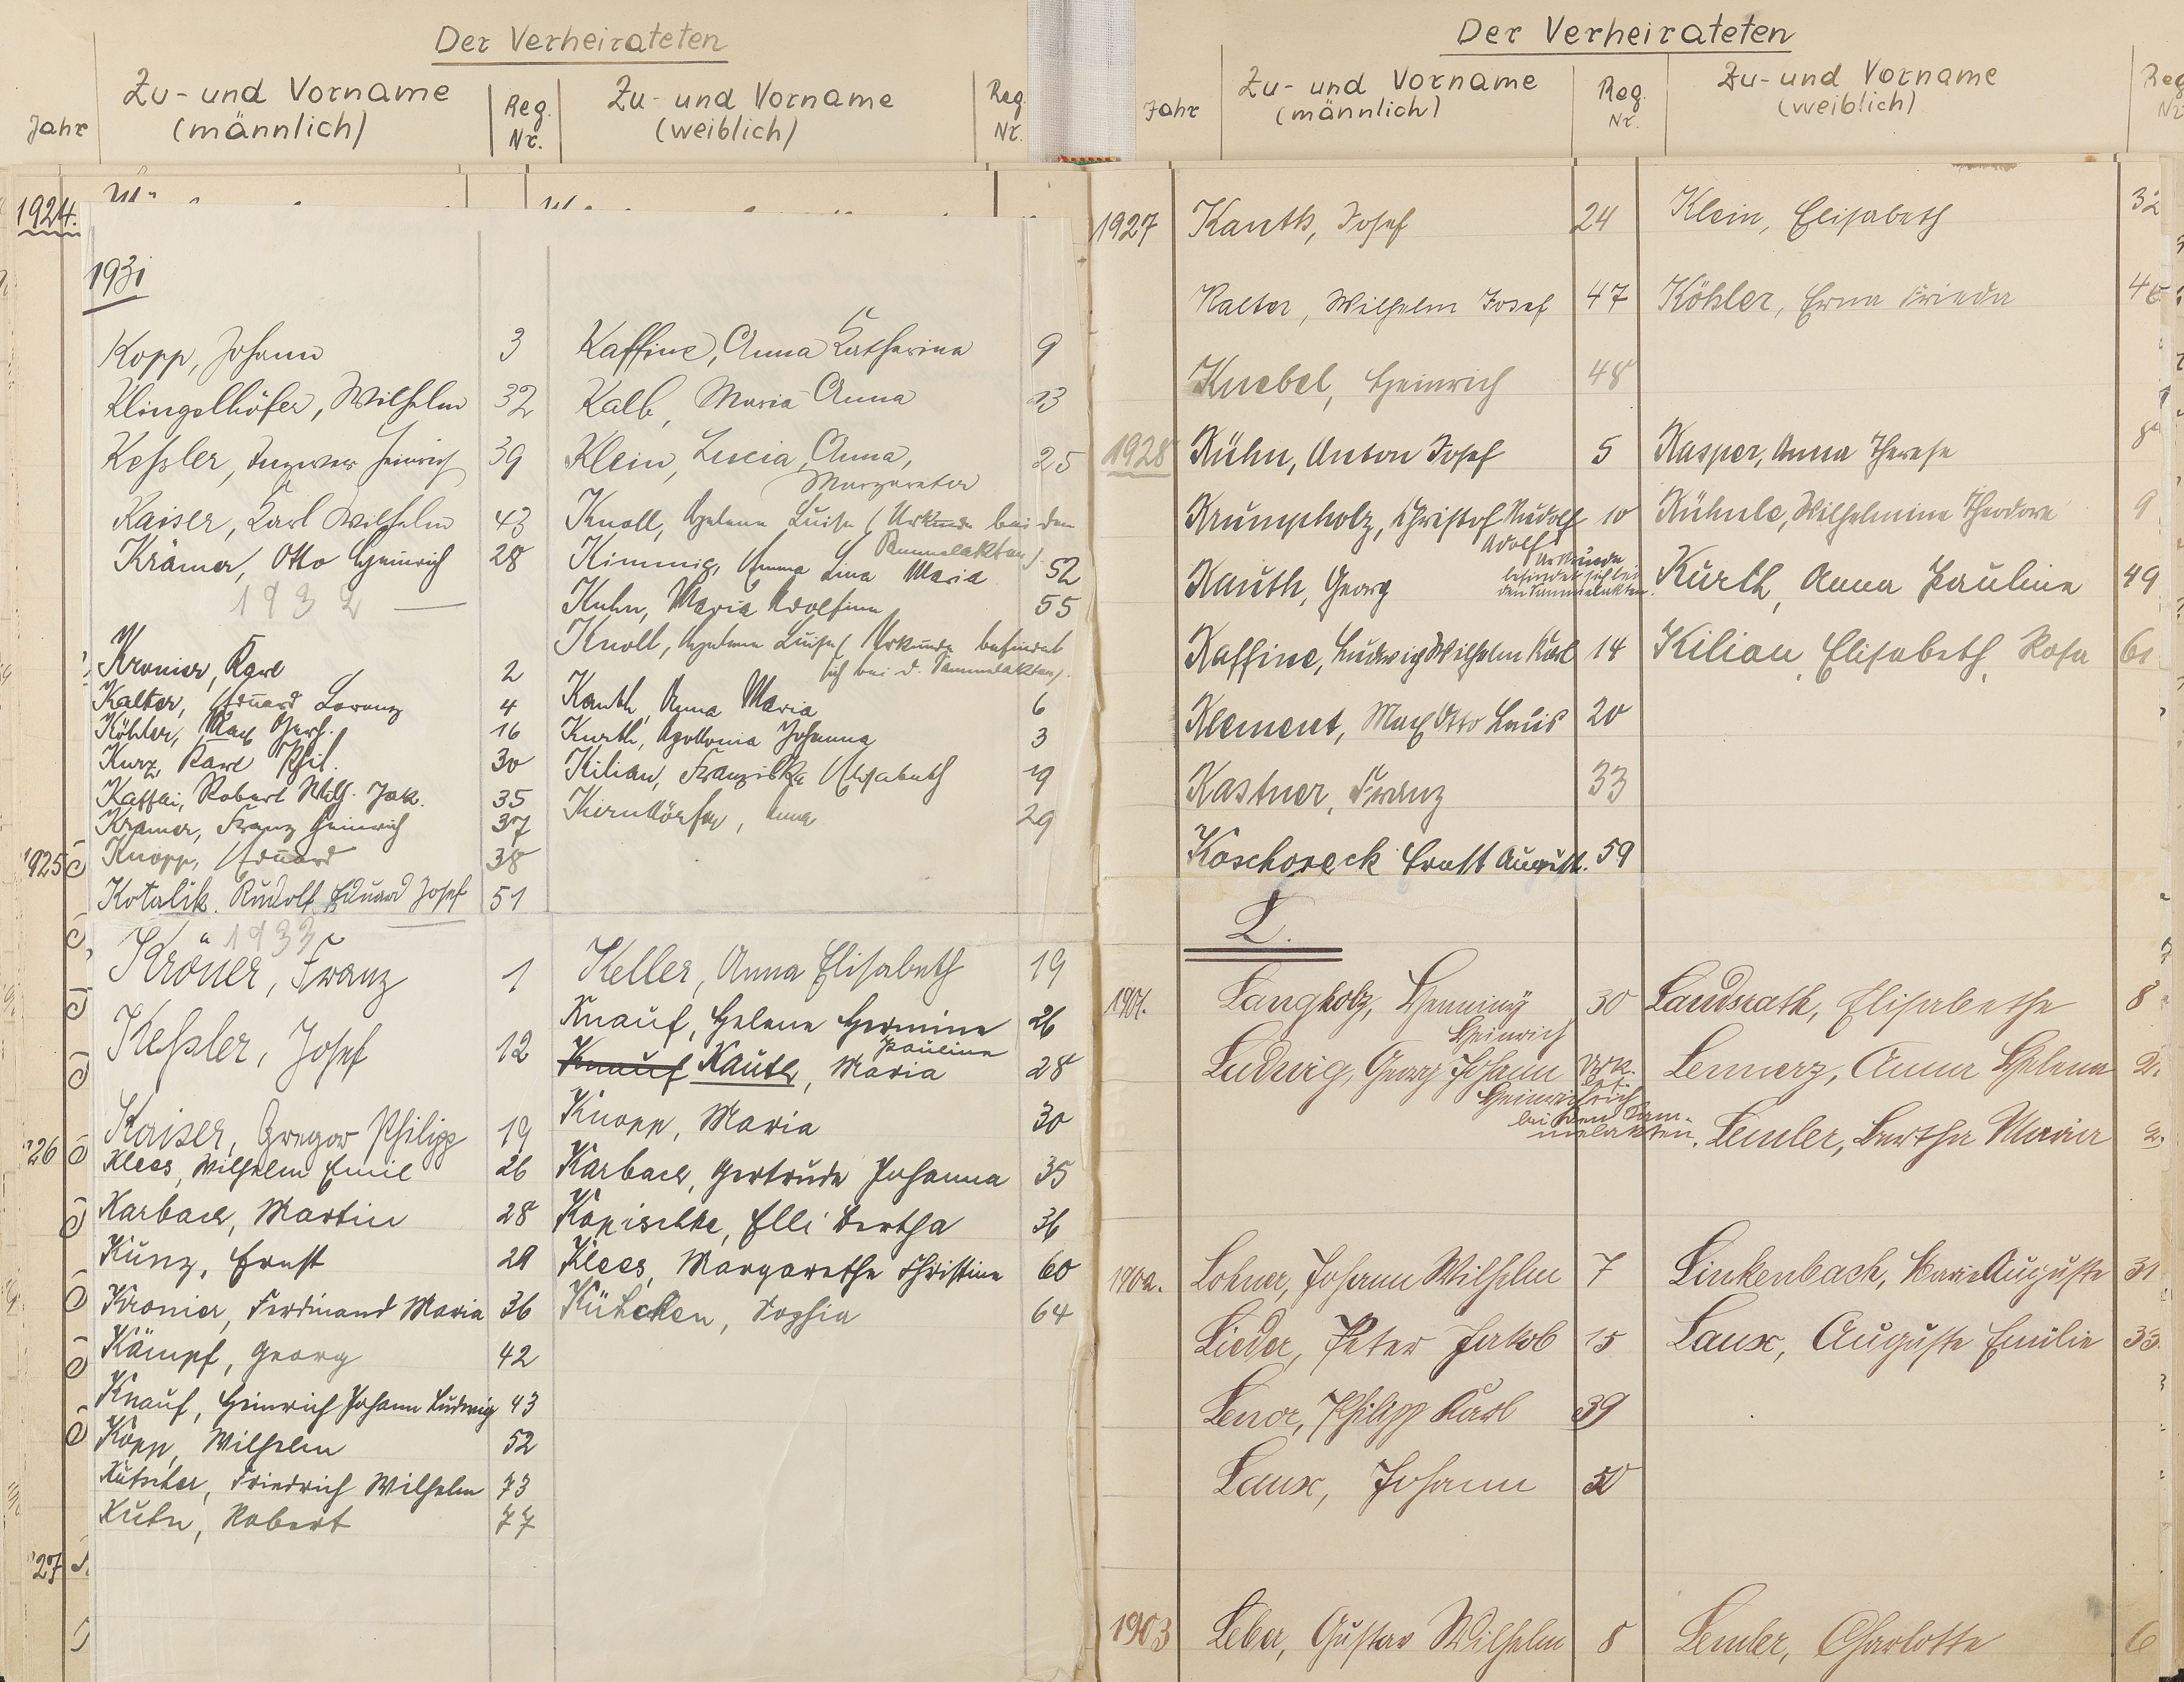 Der Verheirateten
Jahr
Zu- und Vorname
(männlich)
Reg.
Nr.
Zu- und Vorname
(weiblich)
Reg.
Nr.
1924.
1931
Kopp, Johann 3 Kaffine, Anna Katharina 9
Klingelhöfer, Wilhelm 32 Kalb, Maria Anna 23
Keßler, Heinrich 39 Klein, Luzia, Anna, 25
Margareta
Kaiser, Karl Wilhelm 43 Knoll, Helene Luise (Urkunde bei den
Sammelakten)
Krämer, Otto Heinrich 28 Kimmig, Emma Lina Maria 52
1932 — Kuhn, Maria Adolfine 55
Knoll, Helene Luise (Urkunde befindet
sich bei d. Sammelakten).
Kronier, Karl 2
Kalter, Eduard Lorenz 4 Kauth, Anna Maria 6
Köhler, Max Gerh. 16 Kurth, Apollonia Johanna 3
Kurz, Karl Phil. 30 Kilian, Franziska Elisabeth 19
Kaffai, Robert Wilh. Jak. 35 Kerndörfer, Anna 29
Kramer, Franz Heinrich 37
1925 Knopp, Eduard 38
Kotalik, Rudolf Eduard Josef 51
1933
Kröner, Franz 1 Keller, Anna Elisabeth 19
Knauf, Helene Hermine 26
Keßler, Josef 12 Knauf Kauth, Maria Pauline 28
Knopp, Maria 30
Kaiser, Gregor Philipp 19
'26 Klees, Wilhelm Emil 26 Karbach, Gertrude Johanna 35
Karbach, Martin 28 Kopischke, Elli Bertha 36
Kunz, Ernst 29 Klees, Margarethe Christine 60
Kronier, Ferdinand Maria 36 Kütchen, Sophia 64
Kämpf, Georg 42
Knauf, Heinrich Johann Ludwig 43
Kopp, Wilhelm 52
Kutscher, Friedrich Wilhelm 73
Kuhn, Robert 77
'27
Der Verheirateten
Jahr
Zu- und Vorname
(männlich)
Reg.
Nr.
Zu- und Vorname
(weiblich)
Reg
Nr
1927 Kauth, Josef 24 Klein, Elisabeth 32
Kalter, Wilhelm Josef 47 Köhler, Erna Frieda
Knebel, Heinrich 48
1928 Kühn, Anton Josef 5 Kasper, Anna Therese 8
Krumpholz, Christof Rudolf 10 Kühnle, Wilhelmine Theodore 9
Adolf
Kauth, Georg (Urkunde
befindet sich bei
den Sammelakten. Kurth, Anna Pauline 49
Kaffine, Ludwig Wilhelm Karl 14 Kilian, Elisabeth, Rosa 61
Klement, Max Otto Louis 20
Kastner, Franz 33
Koschoreck Ernst August. 59
L.
1901. Langholz, Henning 30 Landsrath, Elisabethe 8
Heinrich
Ludwig, Georg Johann Urk. Lemerz, Anna Helena 2
Heinrich
bei den Sam-
melakten. Lemler, Bertha Maria 2
1902. Lohner, Johann Wilhelm 7 Linkenbach, Marie Auguste 31
Lieder, Peter Jakob 15 Laux, Auguste Emilie 33
Lenor, Philipp Karl 39
Laux, Johann 50
1903 Leber, Gustav Wilhelm 8 Lemler, Charlotte 6